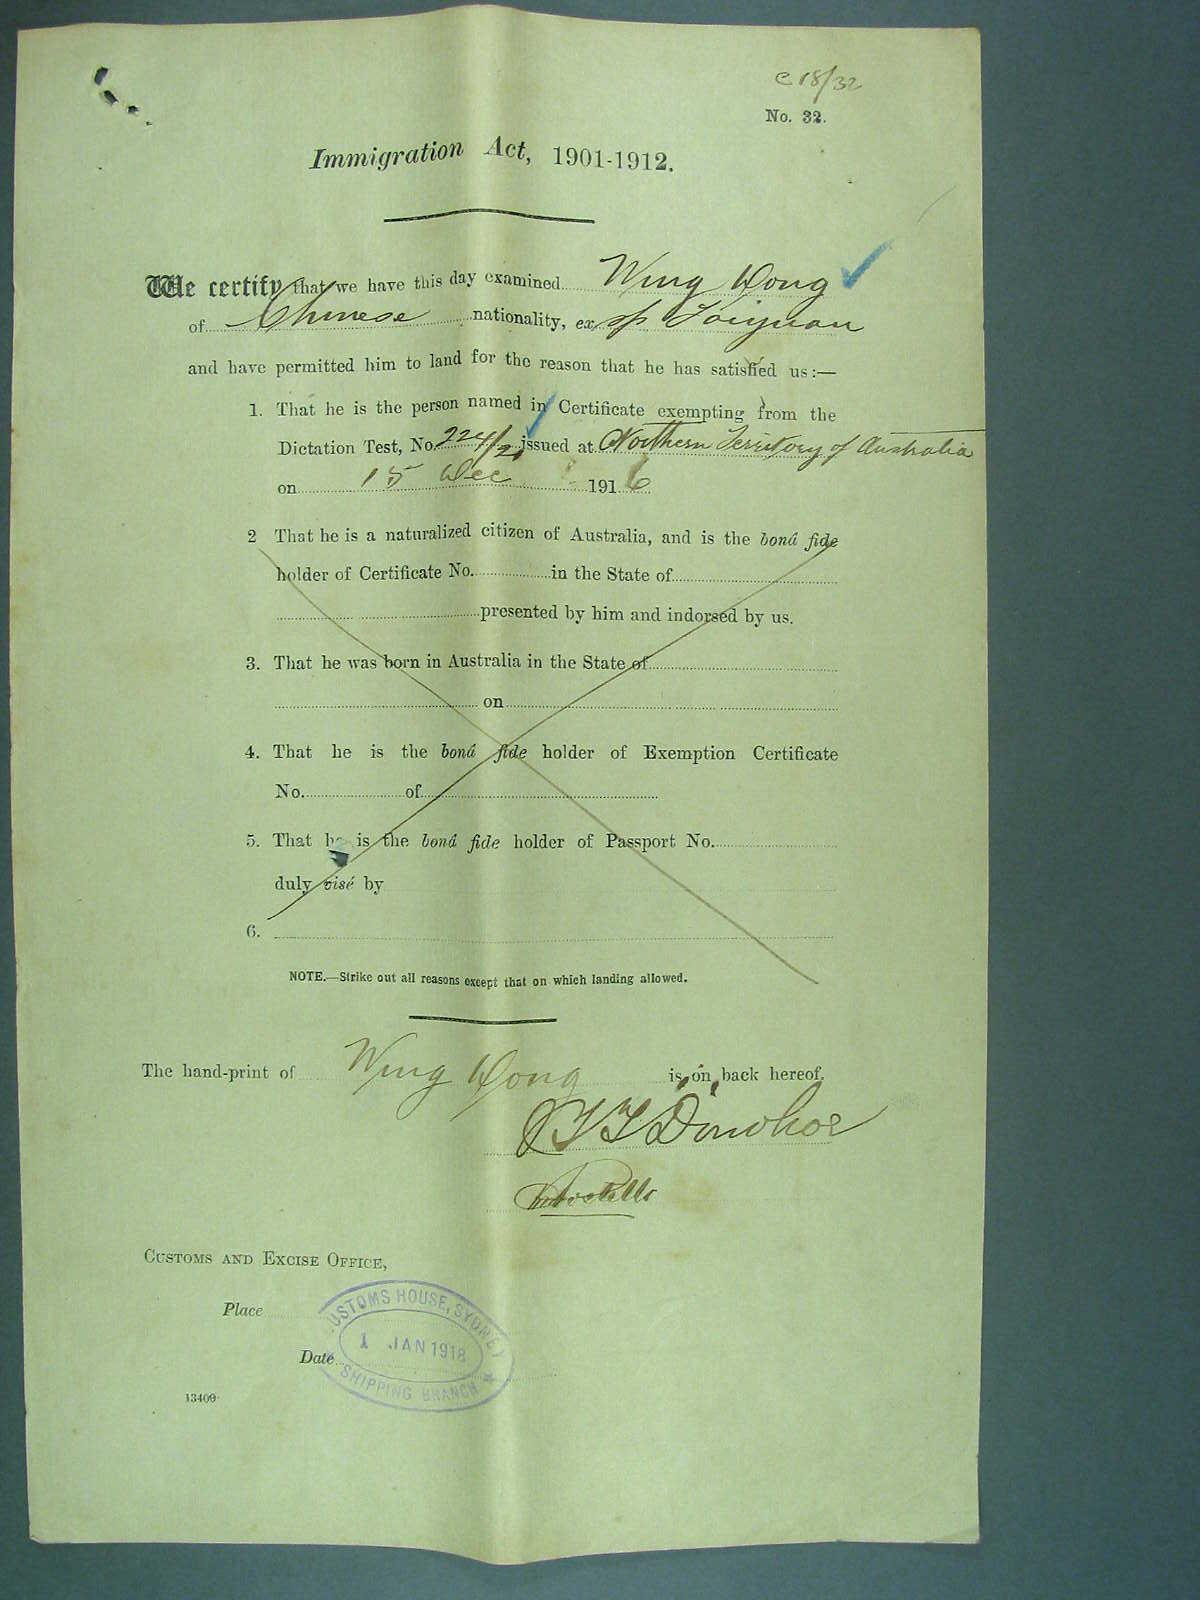 C 18/32
No. 32.
Immigration Act, 1901-1912.
We certify that we have this day examined Wing Dong
of Chinese nationality, ex s/s Taiyuan
and have permitted him to land for the reason that he has satisfied us:—
1. That he is the person named in Certificate exempting from the
Dictation Test, No. 224/2 issued at Northern Territory of Australia
on 15 Dec 1916
2 That he is a naturalized citizen of Australia, and is the bonâ fide
holder of Certificate No. in the State of
presented by him and indorsed by us.
3. That he was born in Australia in the State of
on
4. That he is the bonâ fide holder of Exemption Certificate
No. of
5. That he is the bonâ fide holder of Passport No.
duly visé by
6.
NOTE.—Strike out all reasons except that on which landing allowed.
The hand-print of Wing Dong is on back hereof.
Donohoe
CUSTOMS AND EXCISE OFFICE,
Place
CUSTOMS HOUSE, SYDNEY
1 JAN 1918
Date
SHIPPING BRANCH
13400